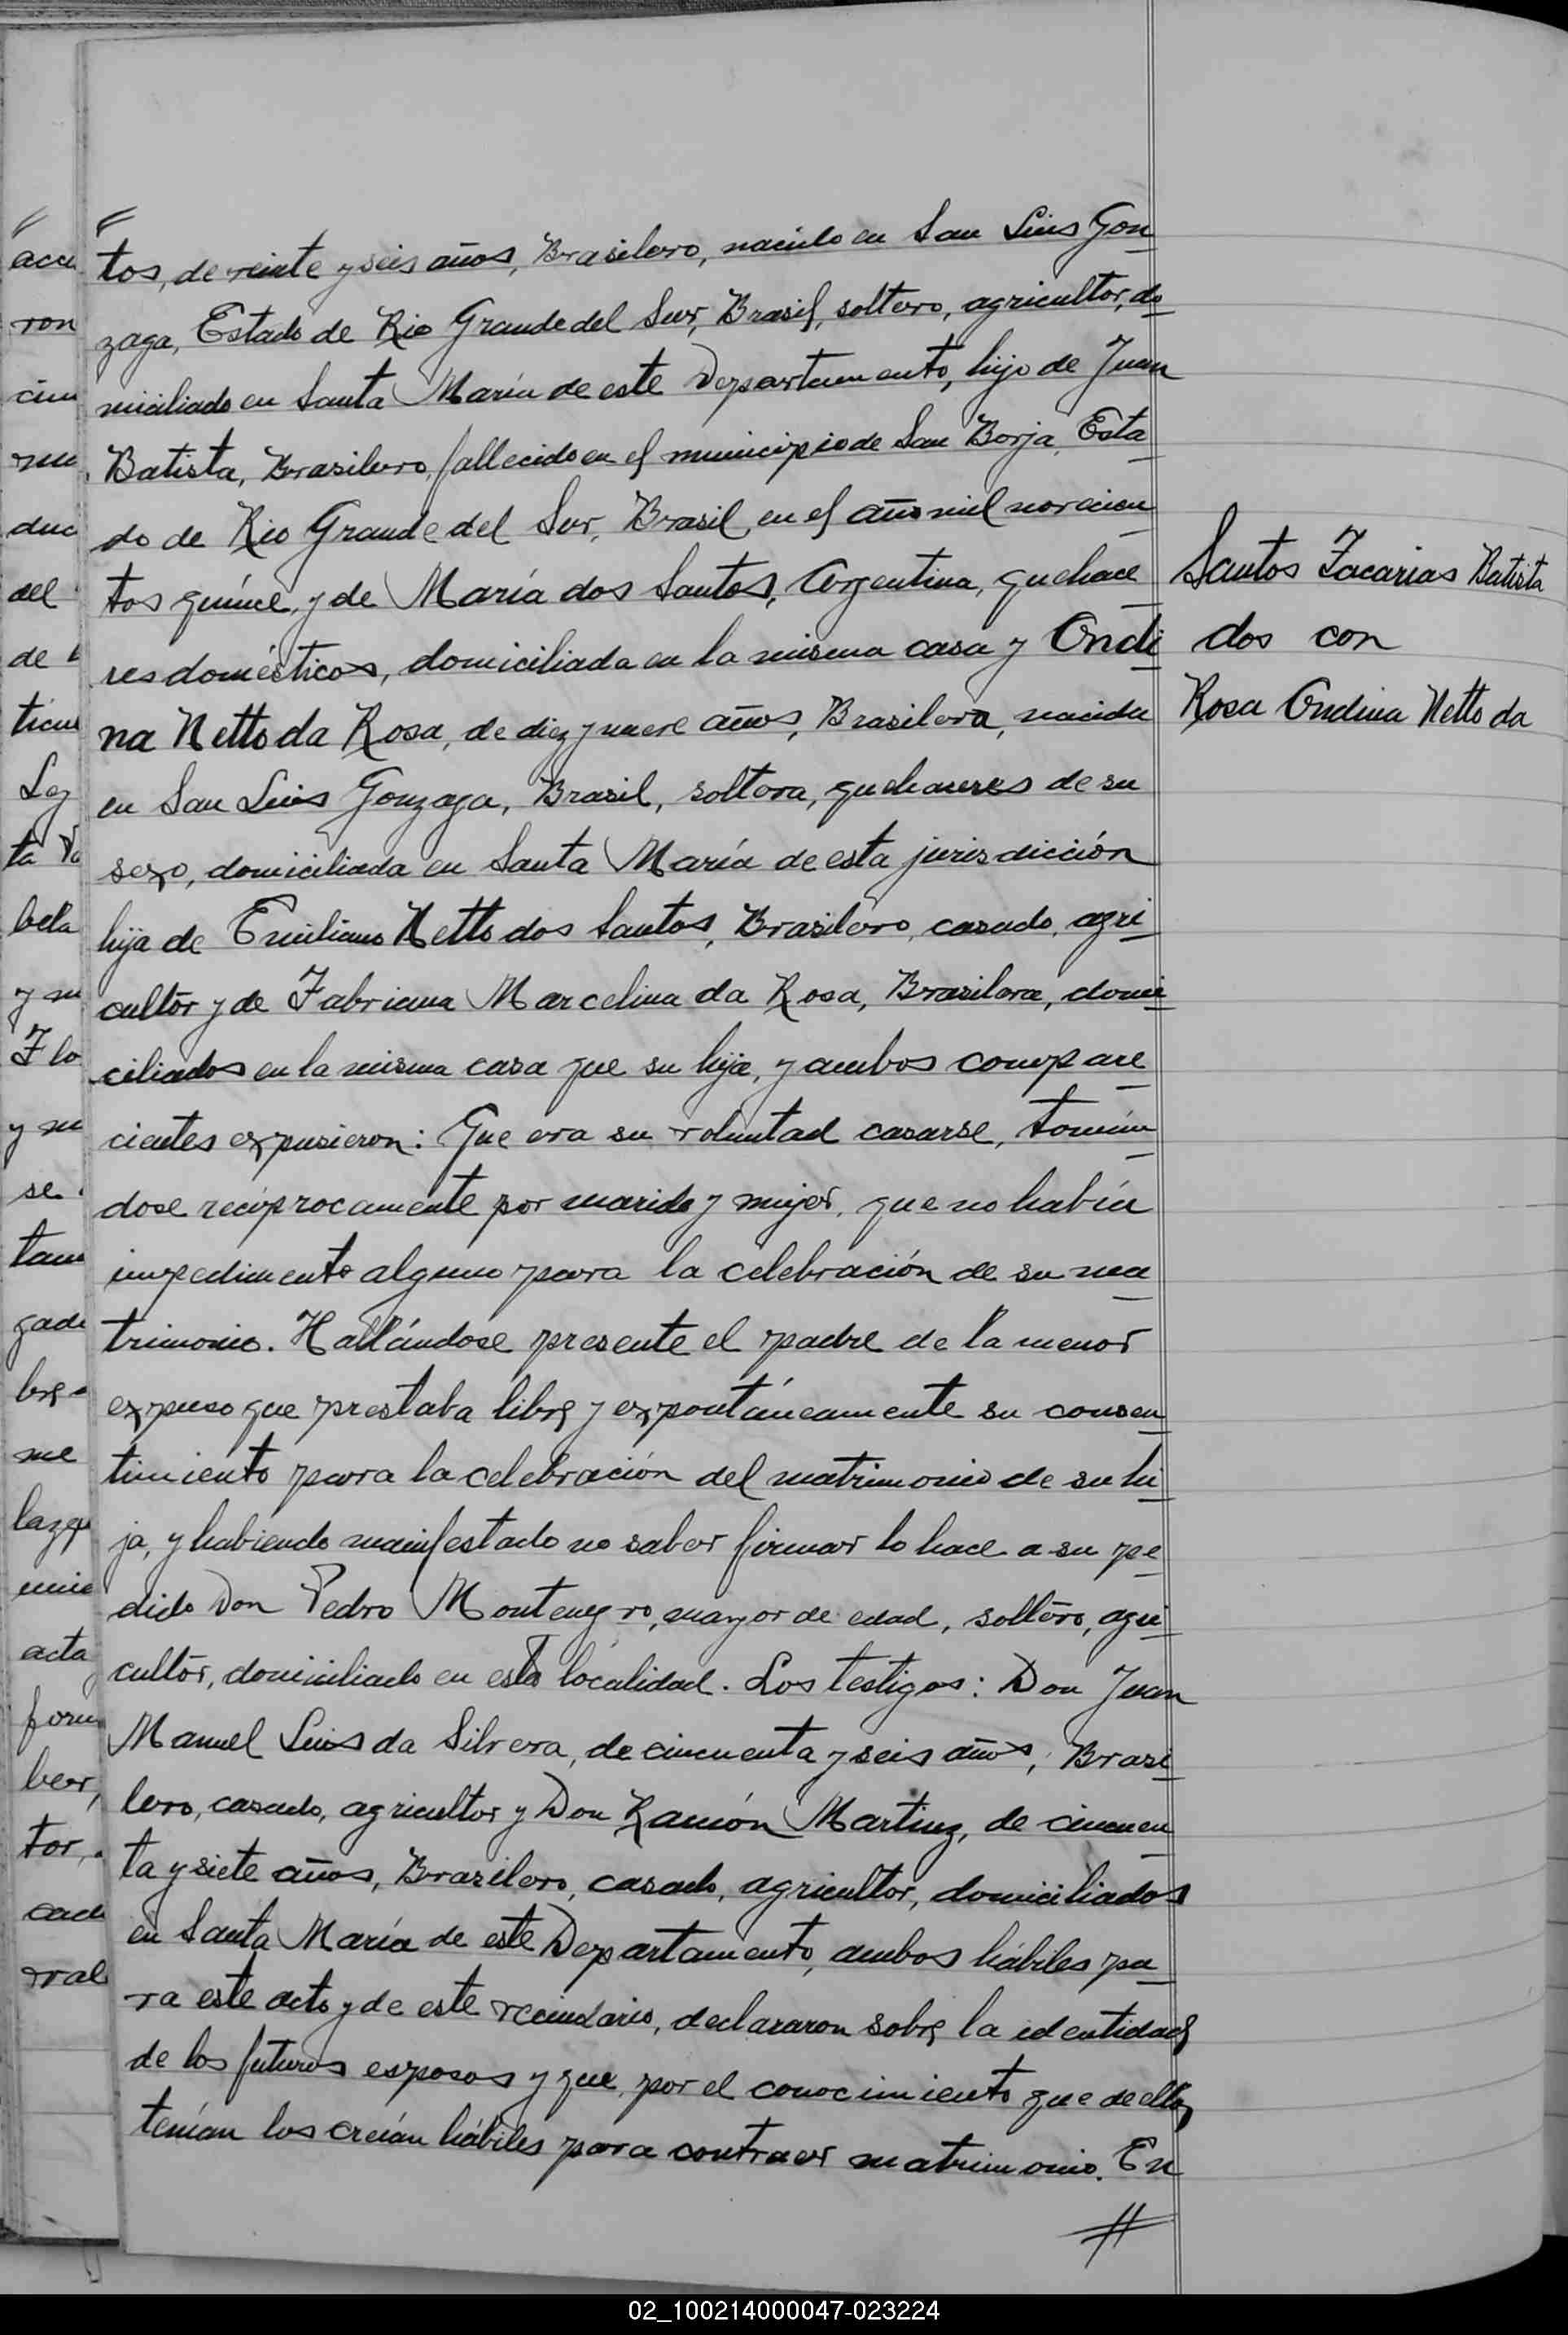 acu
ron
cin
mu
duc
del
de
ticu
Lez
ta
bela
y su
Flo
y su
se
tam
gade
bre
me
lazqu
unie
acta
form
ber,
tor,
cada
rral
tos, de veinte y seis años, Brasilero, nacido en San Luis Gon
zaga, Estado de Rio Grande del Sur, Brasil, soltero, agricultor, do
miciliado en Santa María de este Departamento, hijo de Juan
Batista, Brasilero, fallecido en el municipio de San Borja, Esta
do de Rio Grande del Sur, Brasil, en el año mil novecien
tos quince, y de María dos Santos, Argentina, quehace
res domésticos, domiciliada en la misma casa y Ondi
na Netto da Rosa, de diez y nueve años, Brasilera, nacida
en San Luis Gonzaga, Brasil, soltera, quehaceres de su
sexo, domiciliada en Santa María de esta jurisdicción
hija de Emiliano Netto dos Santos, Brasilero, casado, agri
cultor y de Fabriana Marcelina da Rosa, Brasilera, domi
ciliados en la misma casa que su hija, y ambos compare
cientes expusieron: Que era su voluntad casarse, tomán
dose recíprocamente por marido y mujer, que no había
impedimento alguno para la celebración de su ma
trimonio. Hallándose presente el padre de la menor
expuso que prestaba libre y expontáneamente su consen
timiento para la celebración del matrimonio de su hi
ja, y habiendo manifestado no saber firmar lo hace a su pe
dido Don Pedro Montenegro, mayor de edad, soltero, agri
cultor, domiciliado en esta localidad. Los testigos: Don Juan
Manuel Luis da Silvera, de cincuenta y seis años, Brasi
lero, casado, agricultor y Don Ramón Martinz, de cincuen
ta y siete años, Brasilero, casado, agricultor, domiciliados
en Santa María de este Departamento, ambos hábiles pa
ra este acto y de este vecindario, declararon sobre la identidad
de los futuros esposos y que, por el conocimiento que de ellos
tenían los creían hábiles para contraer matrimonio. En
Santos Zacarias Batista
dos con
Rosa Ondina Netto da
02_100214000047-023224